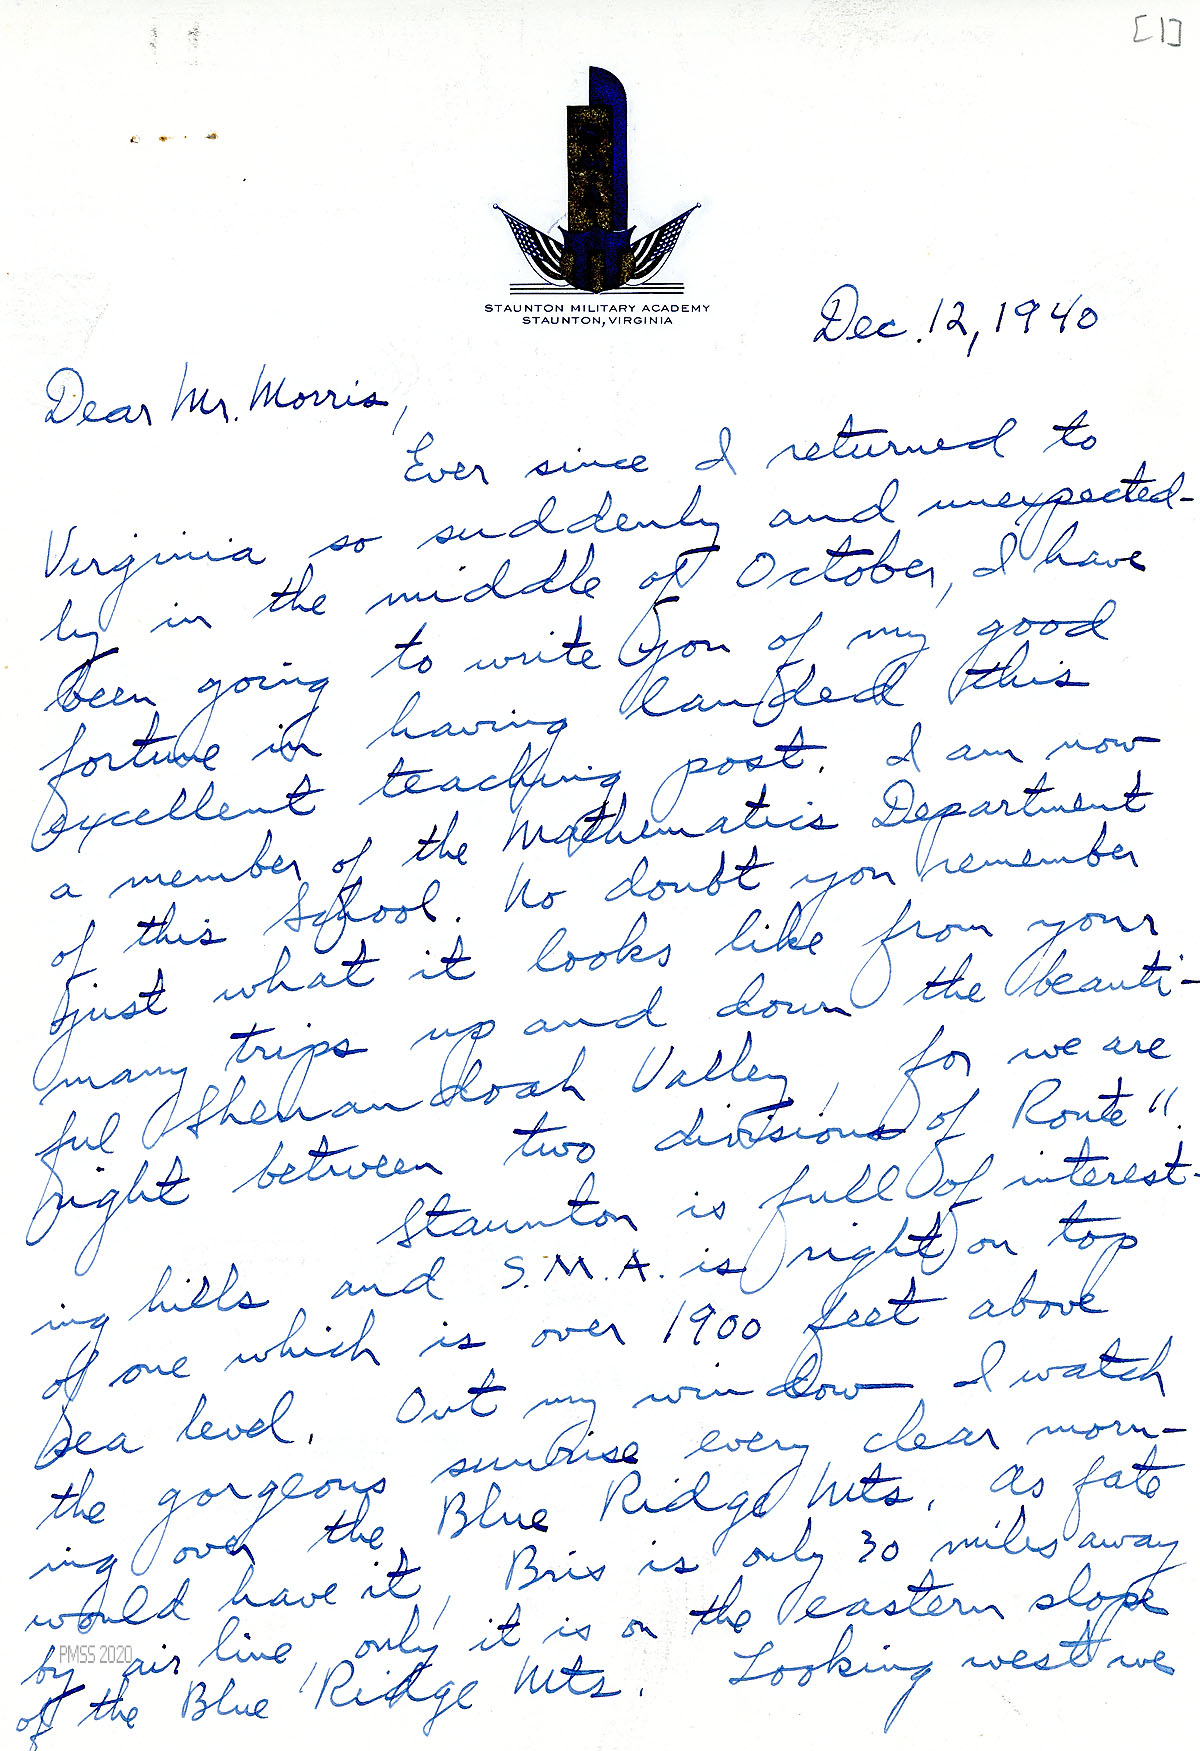 [1]
STAUNTON MILITARY ACADEMY
STAUNTON, VIRGINIA
Dec. 12, 1940
Dear Mr. Morris,
Ever since I returned to
Virginia so suddenly and unexpected-
ly in the middle of October, I have
been going to write you of my good
fortune in having landed this
excellent teaching post. I am now
a member of the Mathematics Department
of this School. No doubt you remember
just what it looks like from your
many trips up and down the beauti-
ful Shenandoah Valley, for we are
right between two divisions of Route 11.
Staunton is full of interest-
ing hills and S.M.A. is right on top
of one which is over 1900 feet above
sea level. Out my window I watch
the gorgeous sunrise every clear morn-
ing over the Blue Ridge Mts. As fate
would have it, Brix is only 30 miles away
by air line, only it is on the eastern slope
of the Blue Ridge Mts. Looking west we
PMSS 2020